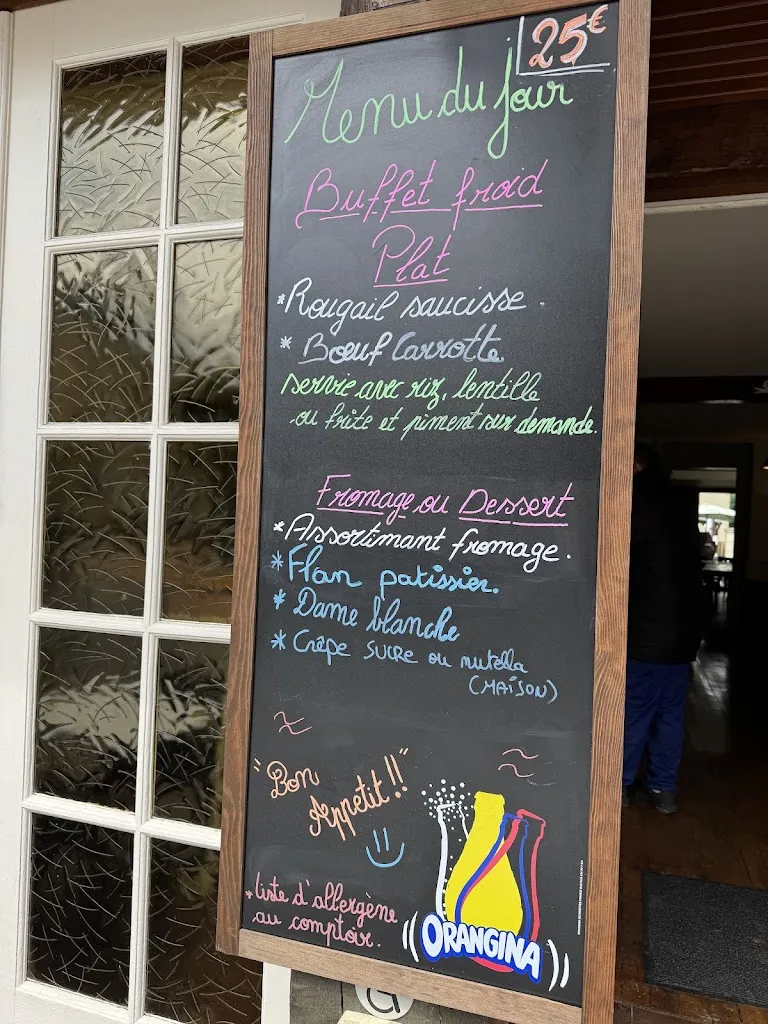 25€
Menu du jour
Buffet froid
Plat
*Rougail saucisse.
* Bœuf Carrotte
servie avec riz, lentille
ou frite et piment sur demande.
Fromage ou Dessert
*Assortimant fromage.
*Flan patissier.
* Dame blanche
* Crêpe SUCRE ou nutella
(MAISON)
"Bon
Appetit!!"
*liste d'allergène
au comptoir.
ORANGINA